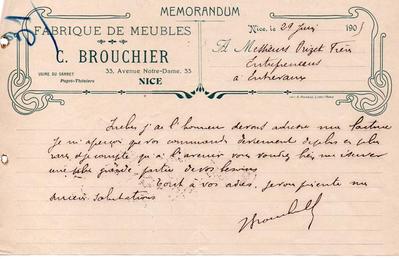 MEMORANDUM
FABRIQUE DE MEUBLES
C. BROUCHIER
USINE DU SARRET
Puget-Théniers
33, Avenue Notre-Dame, 33
NICE
Nice, le 29 Juin 190
A Messieurs Frères
Entrepreneurs
à Entrevaux
Inclus j'ai l'honneur de vous adresser ma facture
Je m'aperçois que vos commandes deviennent de plus en plus
compte qu'à l'avenir vous voudrez bien me réserver
une plus grande partie de vos besoins
Tout à vos ordres, je vous présente mes
sincères Salutations